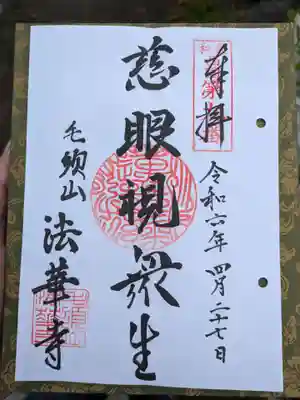 奉拝
令和六年 四月二十七日
慈眼視衆生
毛頭山 法華寺